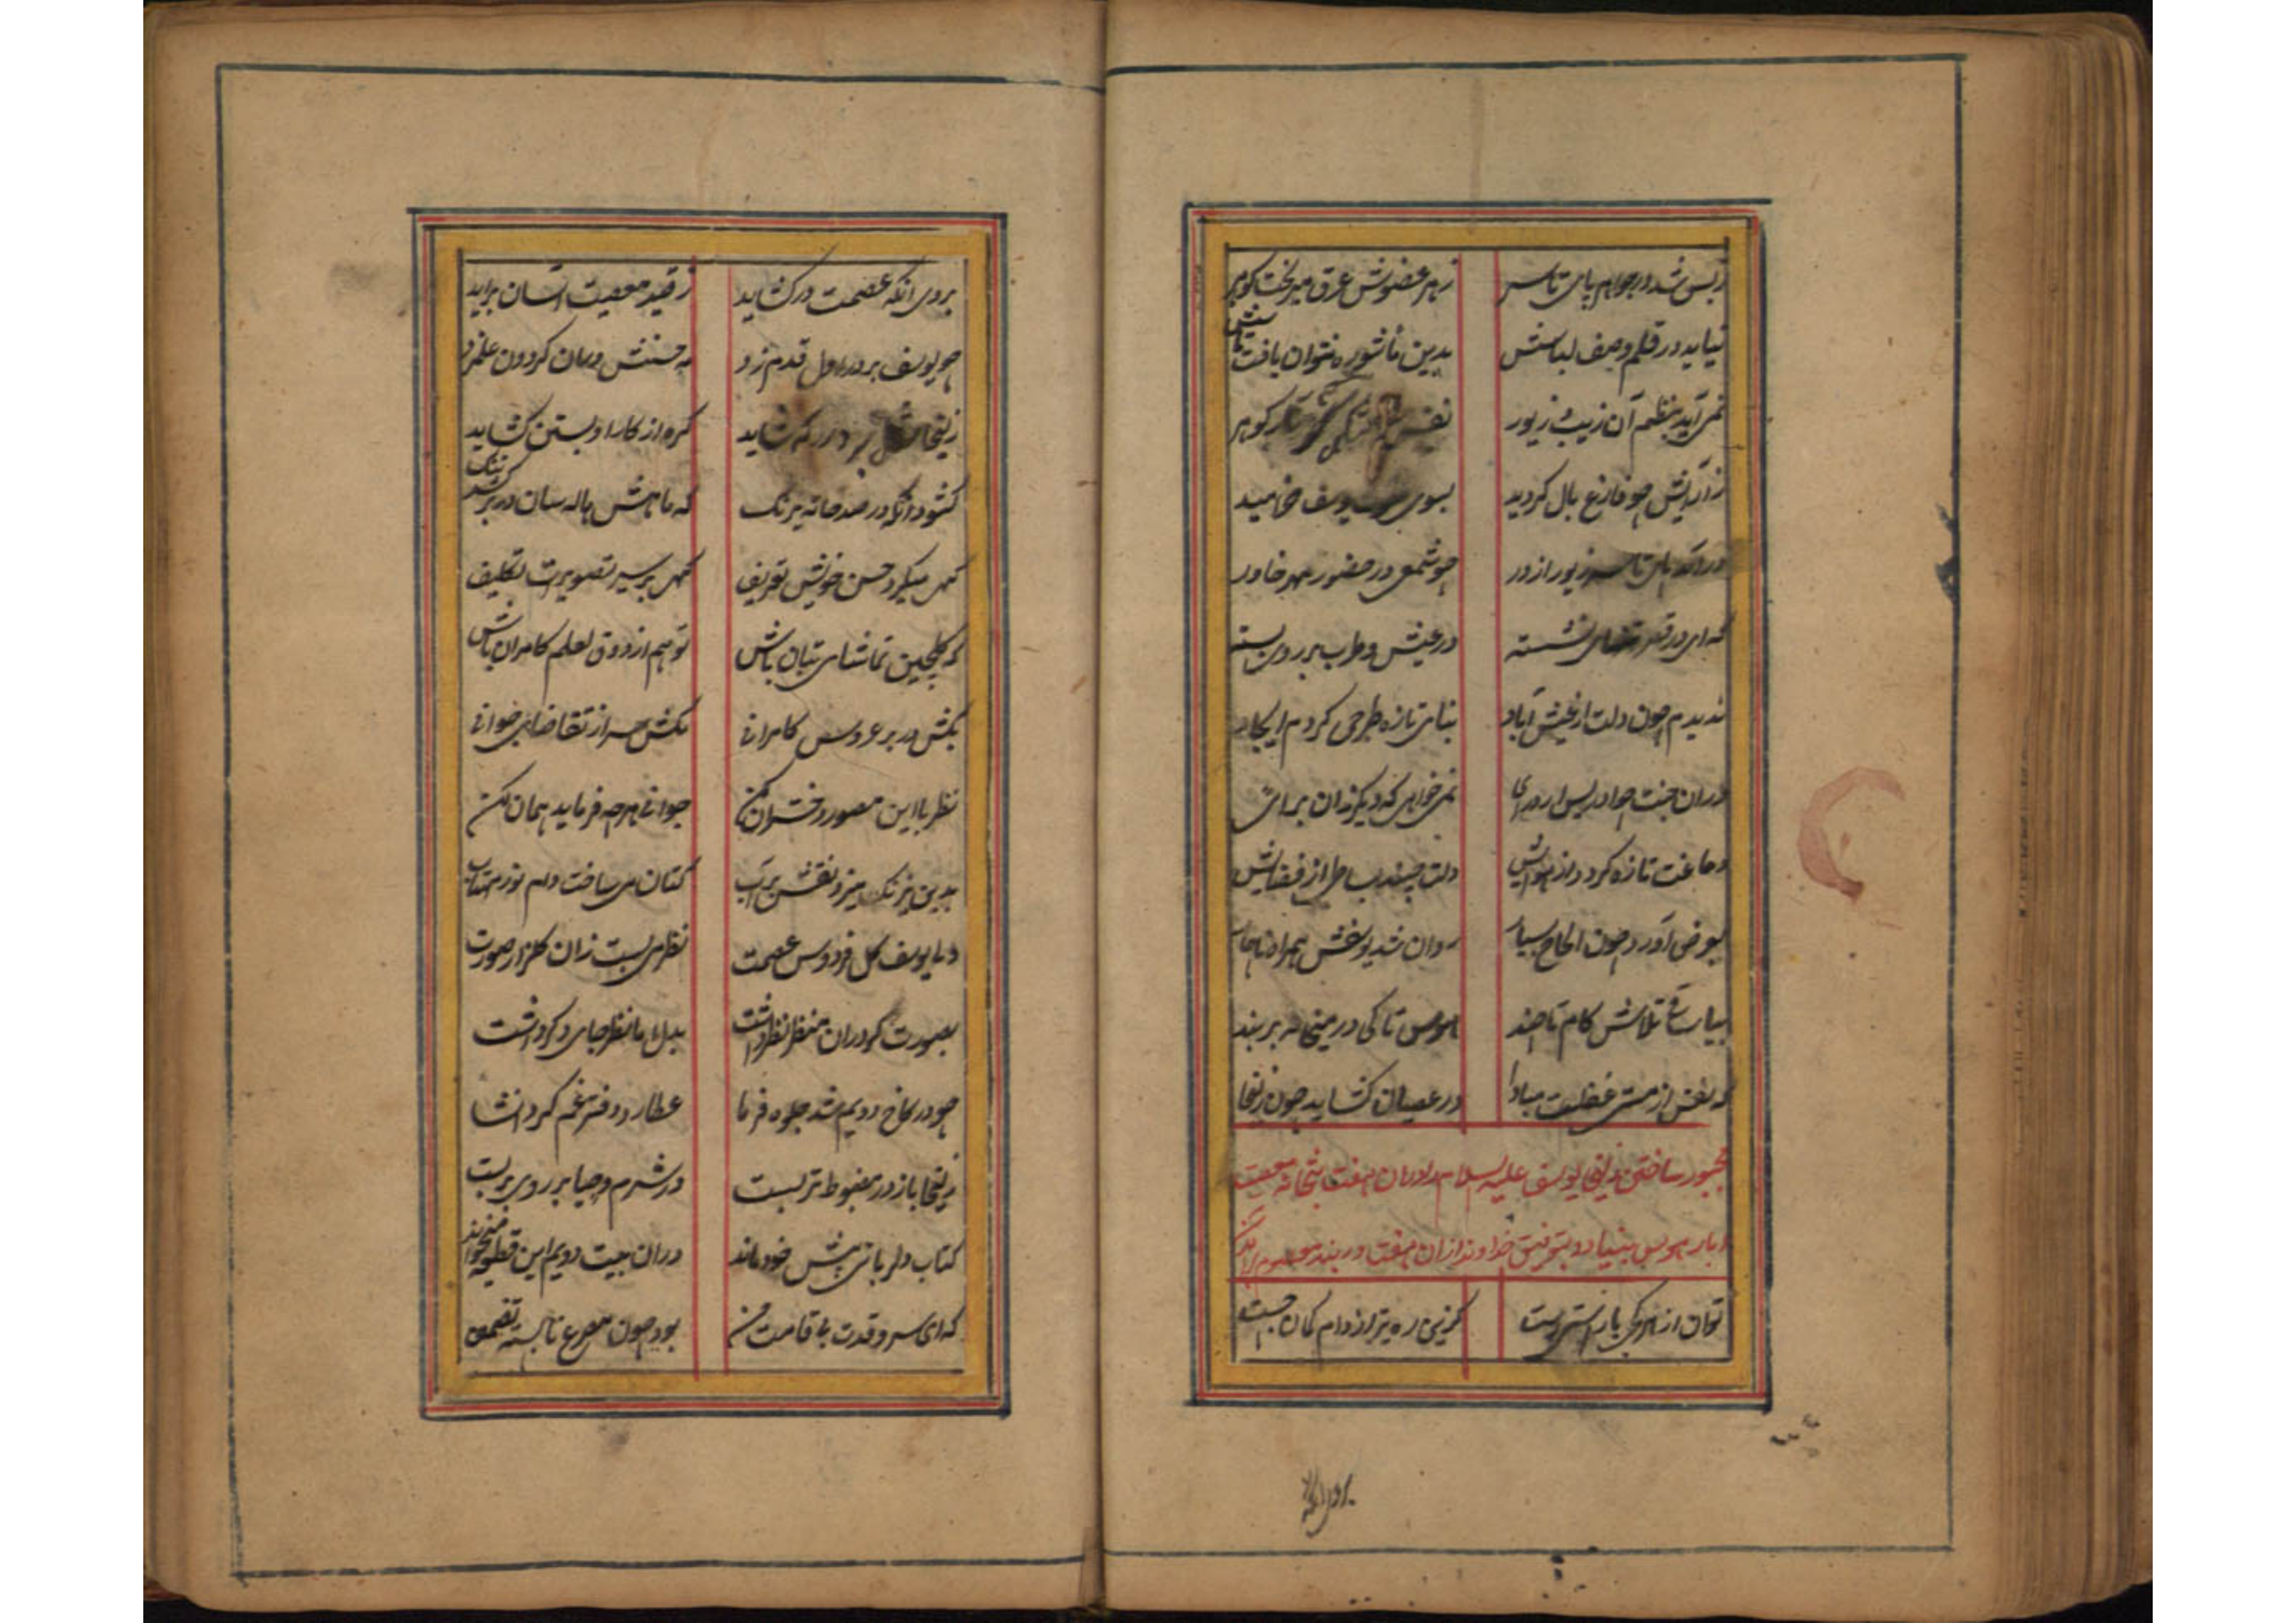 زبس شد در جواهر پای تا سر زهر عضوش عرق میریخت کوهر
نیاید در قلم وصف لباسش بدین ماشوره نتوان یافت تاسش
نمی آید بنظم آن زیب و زیور نفس کوهر
زآرایش چو فارغ بال کردید بسوی یوسف خرامید
درآمد پای تا سر زیور از در چو شمعی در حضور مهر خاور
که ای در قصر نشسته در عیش و طرب بر روی بسته
ندیدم چون دلت از عیش آباد بنای تازه طرحی کردم ایجاد
دران جنت چو ادریس ار درآی نمی خواهی که دیکر زان برآی
دماغت تازه کردد از هوایش دلت چیند بساط از فضایش
بعرض آورد چون الحاح بسیار روان شد یوسفش همراه ناچار
بیا ساقی تلاش کام تا چند هوس تا کی در میخانه بربند
که نفس از مستی غفلت مبادا در عصیان کشاید چون زلیخا
مجبور ساختن زلیخا یوسف علیه السلام را دران هفت بتخانه معصیت
بنیاد و بتوفیق خداوند ازان هفت در بند
توان از هر یکی با راستی رست کزینی ره تیر از دام کمان جست
بروی آنکه
بروی آنکه عصمت در کشاید ز قید معصیت آسان برآید
چو یوسف بر در اول قدم زد مه حسنش دران کردون علم زد
زلیخا بر در که شاید کره از کار او بستن کشاید
کشود آنکه در صد خانه نیرنک که ماهش هاله سان در بر کشد تنک
کهی میکرد حسن خویش تعریف کهی بر سیر تصویرات تکلیف
که کلچین تماشای بتان باش تو هم از ذوق لعلم کامران باش
بکش در بر عروس کامرانی مکش سر از تقاضای جوانی
نظر با این مصور دختران کن جوانی هر چه فرماید همان کن
بدین نیرنک میزد نقش بر آب کتان می ساخت دام نور مهتاب
ولی یوسف کل فردوس عصمت نظر می بست زان کلزار صورت
بصورت کر دران منظر نظر داشت بدل اما نظر جای دکر داشت
چو در کاخ دویم شد جلوه فرما عطارد دفتر غم کرد انشا
زلیخا باز در مضبوط تر بست در شرم و حیا بر روی بر بست
کتاب دلربائی پیش خود ماند دران بیت دویم این قطعه میخواند
که ای سرو قدت با قامت من بود چون مصرع نابسته تضمین